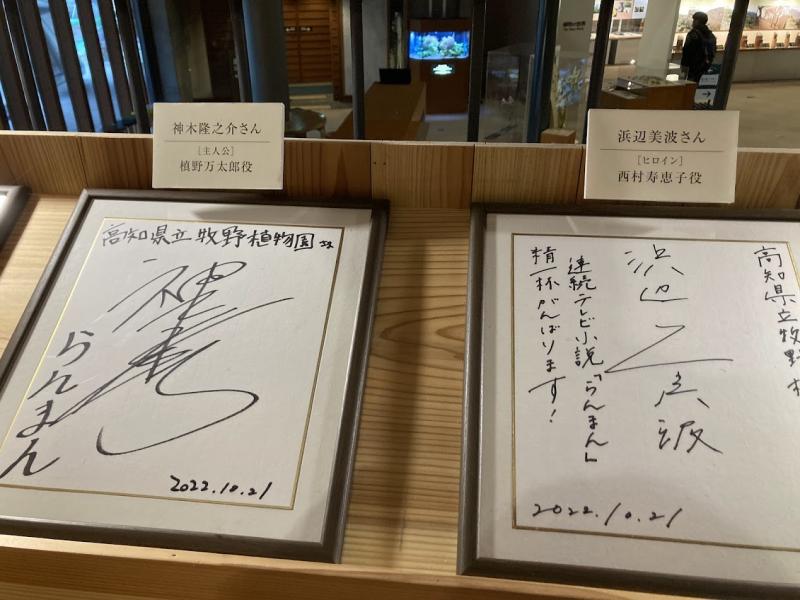 神木隆之介さん
［主人公］
槙野万太郎役
高知県立牧野植物園さま
らんまん
2022.10.21
浜辺美波さん
［ヒロイン］
西村寿恵子役
高知県立牧野
浜辺美波
連続テレビ小説「らんまん」
精一杯がんばります!
2022.10.21